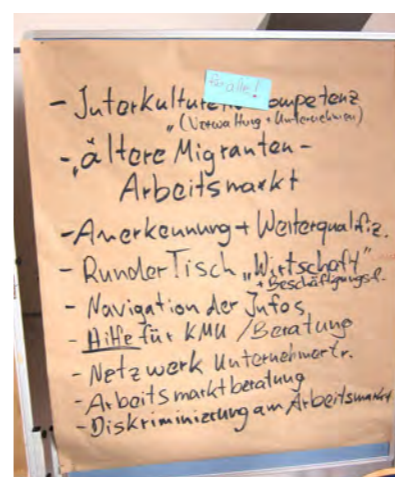 für alle!
- Interkulturelle Kompetenz
"(Verwaltung + Unternehmen)
- "ältere Migranten -
Arbeitsmarkt
- Anerkennung + Weiterqualifiz.
- Runder Tisch "Wirtschaft"
+ Beschäftigungsf.
- Navigation der Infos
- Hilfe für KMU / Beratung
- Netzwerk Unternehmertr.
- Arbeitsmarktberatung
- Diskriminierung am Arbeitsmarkt